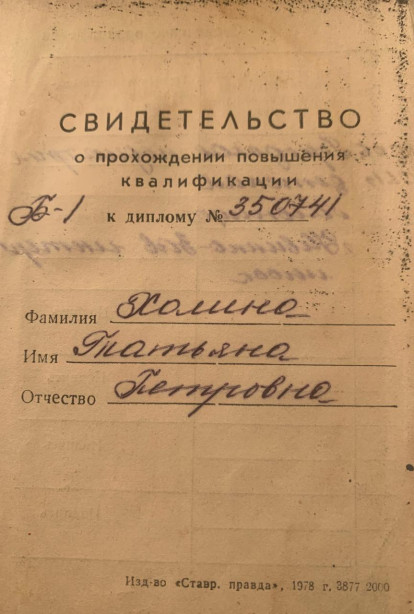 СВИДЕТЕЛЬСТВО
о прохождении повышения
квалификации
Б-1 к диплому № 350741
Фамилия Халина
Имя Татьяна
Отчество Петровна
Изд-во «Ставр. правда», 1978 г. 3877 2000